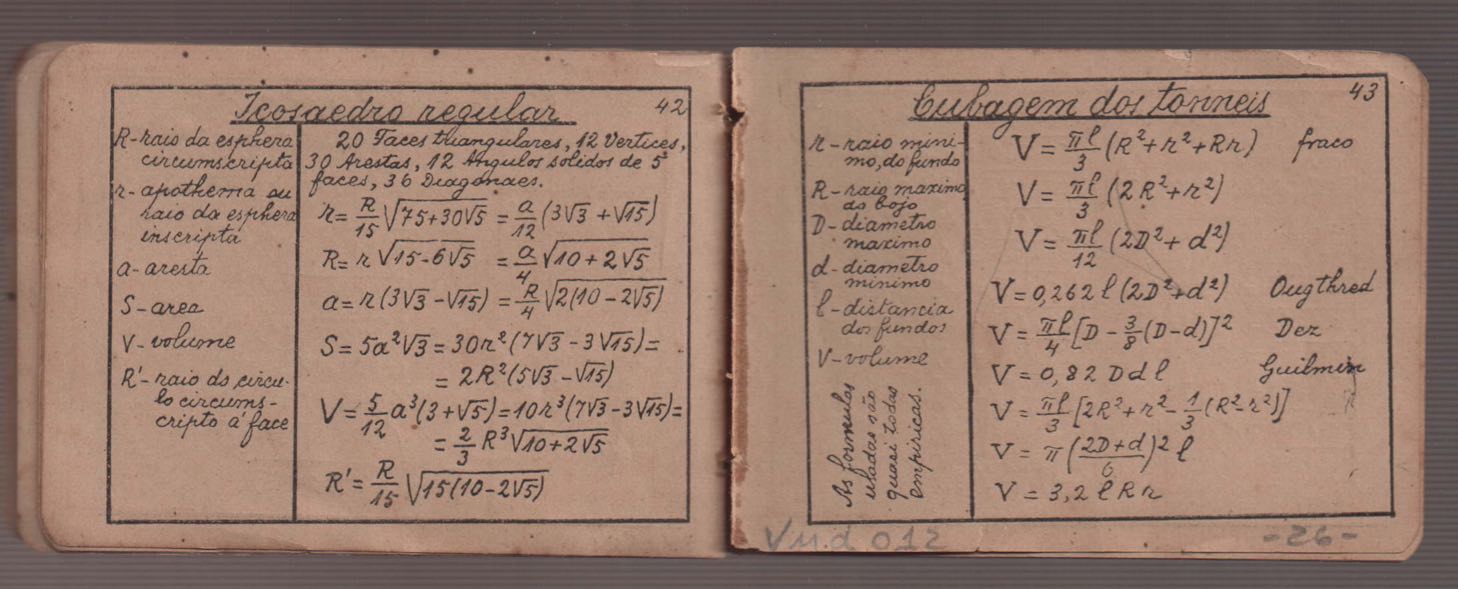 Icosaedro regular 42
R-raio da esphera
circumscripta
r-apothema ou
raio da esphera
inscripta
a-aresta
S-area
V-volume
R'-raio do circu-
lo circums-
cripto á face
20 Faces triangulares, 12 Vertices,
30 Arestas, 12 Angulos solidos de 5
faces, 36 Diagonaes.
r = R/15 √(75+30√5) = a/12 (3√3 + √15)
R = r √(15-6√5) = a/4 √(10+2√5)
a = r(3√3 - √15) = R/4 √(2(10-2√5))
S = 5a²√3 = 30r²(7√3 - 3√15) =
= 2R²(5√3 - √15)
V = 5/12 a³(3+√5) = 10r³(7√3 - 3√15) =
= 2/3 R³ √(10+2√5)
R' = R/15 √(15(10-2√5))
Cubagem dos tonneis 43
r-raio mini-
mo, do fundo
R-raio maximo
do bojo
D-diametro
maximo
d-diametro
minimo
l-distancia
dos fundos
V-volume
As formulas
usadas são
quasi todas
empiricas.
V = πl/3 (R²+r²+Rr) fraco
V = πl/3 (2R²+r²)
V = πl/12 (2D²+d²)
V = 0,262 l (2D²+d²) Ougthred
V = πl/4 [D - 3/8 (D-d)]² Dez
V = 0,82 D d l Guilmin
V = πl/3 [2R²+r² - 1/3 (R²-r²)]
V = π ((2D+d)/6)² l
V = 3,2 l R r
-26-